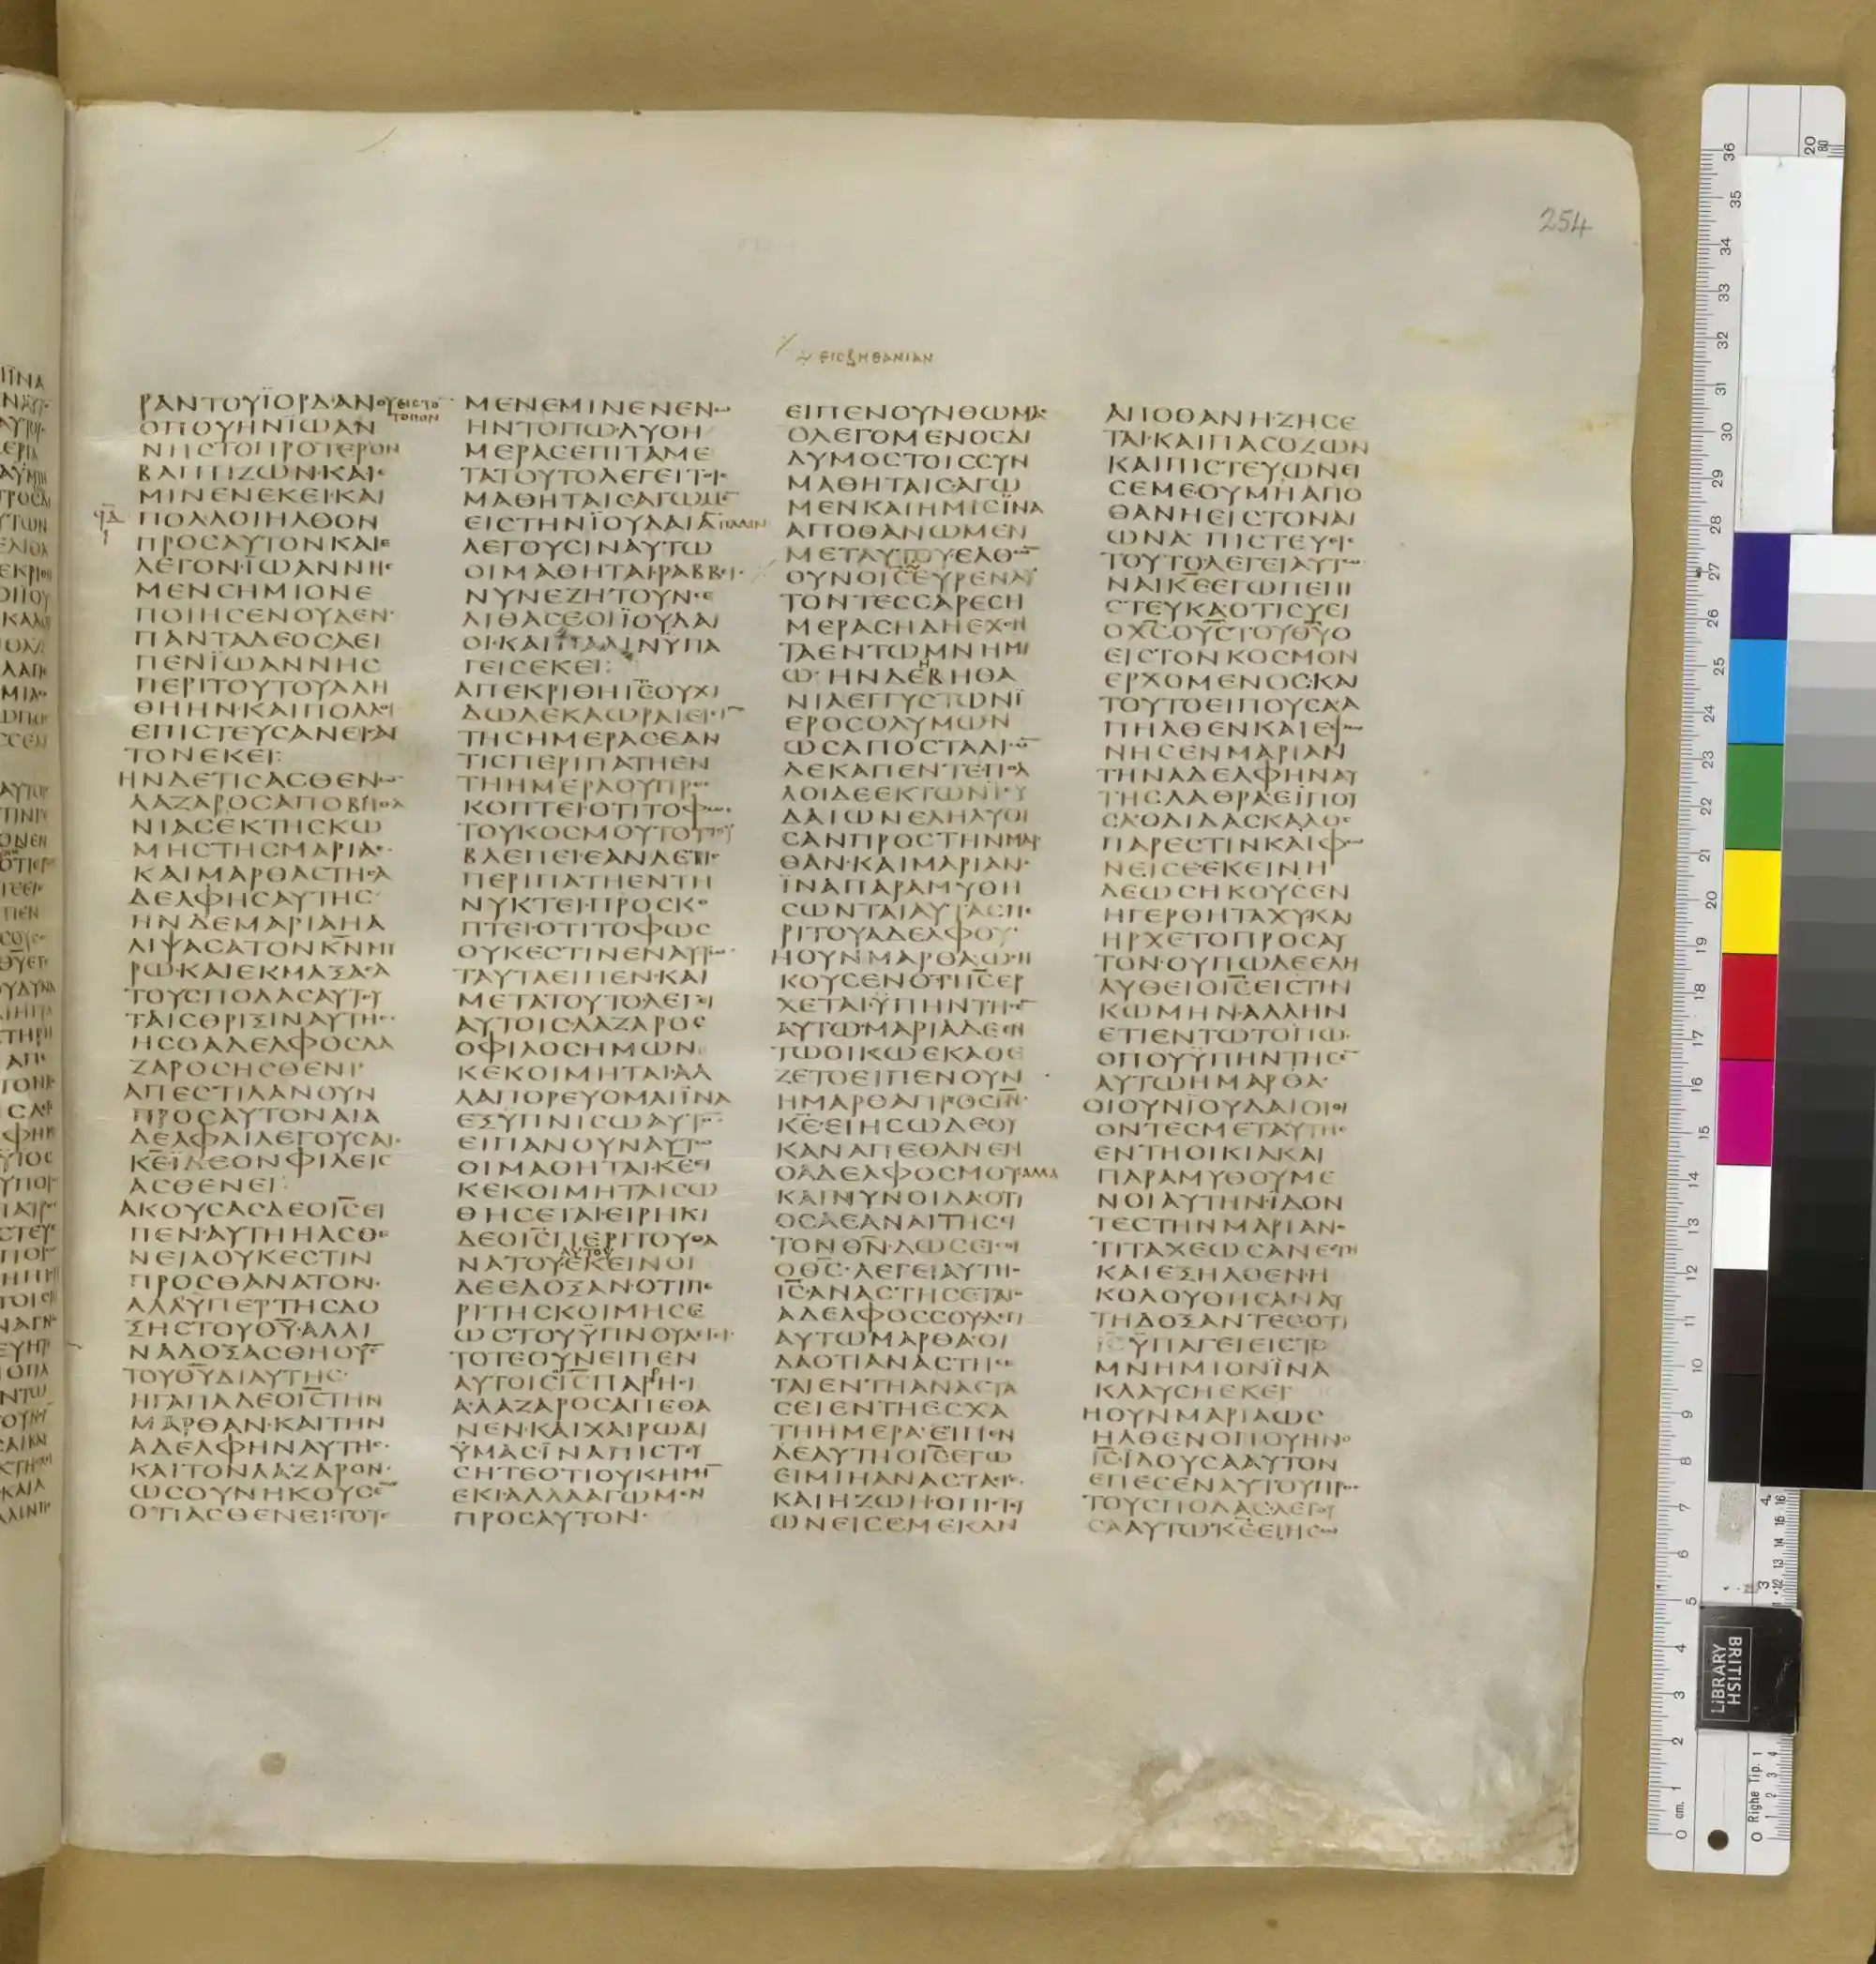 254
εισβηθανιαν
ΡΑΝΤΟΥΪΟΡΔΑΝΟΥειστο
τοπον
ΟΠΟΥΗΝΪΩΑΝ
ΝΗΣΤΟΠΡΟΤΕΡΟΝ
ΒΑΠΤΙΖΩΝ·ΚΑΙΕ
ΜΙΝΕΝΕΚΕΙ·ΚΑΙ
ΠΟΛΛΟΙΗΛΘΟΝ
ΠΡΟΣΑΥΤΟΝΚΑΙΕ
ΛΕΓΟΝ·ΪΩΑΝΝΗΣ
ΜΕΝΣΗΜΙΟΝΕ
ΠΟΙΗΣΕΝΟΥΔΕΝ·
ΠΑΝΤΑΔΕΟΣΑΕΙ
ΠΕΝΪΩΑΝΝΗΣ
ΠΕΡΙΤΟΥΤΟΥΑΛΗ
ΘΗΗΝ·ΚΑΙΠΟΛΛΟΙ
ΕΠΙΣΤΕΥΣΑΝΕΙΣΑΥ
ΤΟΝΕΚΕΙ:
ΗΝΔΕΤΙΣΑΣΘΕΝΩΝ
ΛΑΖΑΡΟΣΑΠΟΒΗΘΑ
ΝΙΑΣΕΚΤΗΣΚΩ
ΜΗΣΤΗΣΜΑΡΙΑΣ·
ΚΑΙΜΑΡΘΑΣΤΗΣΑ
ΔΕΛΦΗΣΑΥΤΗΣ·
ΗΝΔΕΜΑΡΙΑΗΑ
ΛΙΨΑΣΑΤΟΝΚ̅Ν̅ΜΥ
ΡΩ·ΚΑΙΕΚΜΑΞΑΣΑ
ΤΟΥΣΠΟΔΑΣΑΥΤΟΥ
ΤΑΙΣΘΡΙΞΙΝΑΥΤΗΣ·
ΗΣΟΑΔΕΛΦΟΣΛΑ
ΖΑΡΟΣΗΣΘΕΝΙ·
ΑΠΕΣΤΙΛΑΝΟΥΝ
ΠΡΟΣΑΥΤΟΝΑΙΑ
ΔΕΛΦΑΙΛΕΓΟΥΣΑΙ·
Κ̅Ε̅ΪΔΕΟΝΦΙΛΕΙΣ
ΑΣΘΕΝΕΙ:
ΑΚΟΥΣΑΣΔΕΟΙ̅Σ̅ΕΙ
ΠΕΝ·ΑΥΤΗΗΑΣΘΕ
ΝΕΙΑΟΥΚΕΣΤΙΝ
ΠΡΟΣΘΑΝΑΤΟΝ·
ΑΛΛΥΠΕΡΤΗΣΔΟ
ΞΗΣΤΟΥΘ̅Υ̅·ΑΛΛΙ
ΝΑΔΟΞΑΣΘΗΟΥΣ̅
ΤΟΥΘ̅Υ̅ΔΙΑΥΤΗΣ·
ΗΓΑΠΑΔΕΟΙ̅Σ̅ΤΗΝ
ΜΑΡΘΑΝ·ΚΑΙΤΗΝ
ΑΔΕΛΦΗΝΑΥΤΗΣ·
ΚΑΙΤΟΝΛΑΖΑΡΟΝ·
ΩΣΟΥΝΗΚΟΥΣΕ̅
ΟΤΙΑΣΘΕΝΕΙ·ΤΟΤΕ
ΜΕΝΕΜΙΝΕΝΕΝΩ
ΗΝΤΟΠΩΔΥΟΗ
ΜΕΡΑΣΕΠΙΤΑΜΕ
ΤΑΤΟΥΤΟΛΕΓΕΙΤΟΙΣ
ΜΑΘΗΤΑΙΣΑΓΩΜΕ̅
ΕΙΣΤΗΝΪΟΥΔΑΙΑ̅παλιν
ΛΕΓΟΥΣΙΝΑΥΤΩ
ΟΙΜΑΘΗΤΑΙ·ΡΑΒΒΕΙ·
ΝΥΝΕΖΗΤΟΥΝΣΕ
ΛΙΘΑΣΕΟΙΪΟΥΔΑΙ
ΟΙ·ΚΑΙΠΑΛΙΝΥΠΑ
ΓΕΙΣΕΚΕΙ:
ΑΠΕΚΡΙΘΗΙ̅Σ̅ΟΥΧΙ
ΔΩΔΕΚΑΩΡΑΙΕΙΣΙ̅
ΤΗΣΗΜΕΡΑΣΕΑΝ
ΤΙΣΠΕΡΙΠΑΤΗΕΝ
ΤΗΗΜΕΡΑΟΥΠΡΟΣ
ΚΟΠΤΕΙ·ΟΤΙΤΟΦΩΣ
ΤΟΥΚΟΣΜΟΥΤΟΥΤΟΥ
ΒΛΕΠΕΙ·ΕΑΝΔΕΤΙΣ
ΠΕΡΙΠΑΤΗΕΝΤΗ
ΝΥΚΤΕΙ·ΠΡΟΣΚΟ
ΠΤΕΙ·ΟΤΙΤΟΦΩΣ
ΟΥΚΕΣΤΙΝΕΝΑΥΤΩ·
ΤΑΥΤΑΕΙΠΕΝ·ΚΑΙ
ΜΕΤΑΤΟΥΤΟΛΕΓΕΙ
ΑΥΤΟΙΣΛΑΖΑΡΟΣ
ΟΦΙΛΟΣΗΜΩΝ
ΚΕΚΟΙΜΗΤΑΙ·ΑΛ
ΛΑΠΟΡΕΥΟΜΑΙΪΝΑ
ΕΞΥΠΝΙΣΩΑΥΤΟ̅·
ΕΙΠΑΝΟΥΝΑΥΤΩ
ΟΙΜΑΘΗΤΑΙ·Κ̅Ε̅ΕΙ
ΚΕΚΟΙΜΗΤΑΙΣΩ
ΘΗΣΕΤΑΙ·ΕΙΡΗΚΙ
ΔΕΟΙ̅Σ̅ΠΕΡΙΤΟΥΘΑ
αυτου
ΝΑΤΟΥ·ΕΚΕΙΝΟΙ
ΔΕΕΔΟΞΑΝ·ΟΤΙΠΕ
ΡΙΤΗΣΚΟΙΜΗΣΕ
ΩΣΤΟΥΫΠΝΟΥΛΕΓΕΙ·
ΤΟΤΕΟΥΝΕΙΠΕΝ
ΑΥΤΟΙΣΙ̅Σ̅ΠΑΡΗΣΙ
ΑΛΑΖΑΡΟΣΑΠΕΘΑ
ΝΕΝ·ΚΑΙΧΑΙΡΩΔΙ
ΫΜΑΣΪΝΑΠΙΣΤΕΥ
ΣΗΤΕΟΤΙΟΥΚΗΜΗ̅
ΕΚΙ·ΑΛΛΑΑΓΩΜΕΝ
ΠΡΟΣΑΥΤΟΝ·
ΕΙΠΕΝΟΥΝΘΩΜΑΣ
ΟΛΕΓΟΜΕΝΟΣΔΙ
ΔΥΜΟΣΤΟΙΣΣΥΝ
ΜΑΘΗΤΑΙΣ·ΑΓΩ
ΜΕΝΚΑΙΗΜΙΣΪΝΑ
ΑΠΟΘΑΝΩΜΕΝ
ΜΕΤΑΥΤΟΥ·ΕΛΘΩ̅
ΟΥΝΟΙ̅Σ̅ΕΥΡΕΝΑΥ
ΤΟΝΤΕΣΣΑΡΕΣΗ
ΜΕΡΑΣΗΔΗΕΧΟΝ
ΤΑΕΝΤΩΜΝΗΜΙ
Ω·ΗΝΔΕΒΗΘΑ
ΝΙΑΕΓΓΥΣΤΩΝΪ
ΕΡΟΣΟΛΥΜΩΝ
ΩΣΑΠΟΣΤΑΔΙΩ̅
ΔΕΚΑΠΕΝΤΕ·ΠΟΛ
ΛΟΙΔΕΕΚΤΩΝΪΟΥ
ΔΑΙΩΝΕΛΗΛΥΘΙ
ΣΑΝΠΡΟΣΤΗΝΜΑΡ
ΘΑΝ·ΚΑΙΜΑΡΙΑΝ·
ΪΝΑΠΑΡΑΜΥΘΗ
ΣΩΝΤΑΙΑΥΤΑΣΠΕ
ΡΙΤΟΥΑΔΕΛΦΟΥ·
ΗΟΥΝΜΑΡΘΑΩΣΗ
ΚΟΥΣΕΝΟΤΙΙ̅Σ̅ΕΡ
ΧΕΤΑΙ·ΫΠΗΝΤΗΣΕ̅
ΑΥΤΩ·ΜΑΡΙΑΔΕΕΝ
ΤΩΟΙΚΩΕΚΑΘΕ
ΖΕΤΟΕΙΠΕΝΟΥΝ
ΗΜΑΡΘΑΠΡΟΣΙ̅Ν̅·
Κ̅Ε̅·ΕΙΗΣΩΔΕΟΥ
ΚΑΝΑΠΕΘΑΝΕΝ
ΟΑΔΕΛΦΟΣΜΟΥ·αλλα
ΚΑΙΝΥΝΟΙΔΑΟΤΙ
ΟΣΑΕΑΝΑΙΤΗΣΗ
ΤΟΝΘ̅Ν̅·ΔΩΣΕΙΣΟΙ
ΟΘ̅Σ̅·ΛΕΓΕΙΑΥΤΗ·
Ι̅Σ̅·ΑΝΑΣΤΗΣΕΤΑΙΟ
ΑΔΕΛΦΟΣΣΟΥΛΕΓΙ
ΑΥΤΩΜΑΡΘΑΟΙ
ΔΑΟΤΙΑΝΑΣΤΗΣΕ
ΤΑΙΕΝΤΗΑΝΑΣΤΑ
ΣΕΙΕΝΤΗΕΣΧΑ
ΤΗΗΜΕΡΑ·ΕΙΠΕΝ
ΔΕΑΥΤΗΟΙ̅Σ̅ΕΓΩ
ΕΙΜΙΗΑΝΑΣΤΑΣΙΣ·
ΚΑΙΗΖΩΗ·ΟΠΙΣΤΕΥ
ΩΝΕΙΣΕΜΕΚΑΝ
ΑΠΟΘΑΝΗ·ΖΗΣΕ
ΤΑΙ·ΚΑΙΠΑΣΟΖΩΝ
ΚΑΙΠΙΣΤΕΥΩΝΕΙ
ΣΕΜΕ·ΟΥΜΗΑΠΟ
ΘΑΝΗΕΙΣΤΟΝΑΙ
ΩΝΑ·ΠΙΣΤΕΥΕΙΣ
ΤΟΥΤΟΛΕΓΕΙΑΥΤΩ
ΝΑΙΚ̅Ε̅ΕΓΩΠΕΠΙ
ΣΤΕΥΚΑΟΤΙΣΥΕΙ
ΟΧ̅Σ̅ΟΥ̅Σ̅ΤΟΥΘ̅Υ̅Ο
ΕΙΣΤΟΝΚΟΣΜΟΝ
ΕΡΧΟΜΕΝΟΣ·ΚΑΙ
ΤΟΥΤΟΕΙΠΟΥΣΑΑ
ΠΗΛΘΕΝΚΑΙΕΦΩ
ΝΗΣΕΝΜΑΡΙΑΝ
ΤΗΝΑΔΕΛΦΗΝΑΥ
ΤΗΣΛΑΘΡΑ·ΕΙΠΟΥ
ΣΑ·ΟΔΙΔΑΣΚΑΛΟΣ
ΠΑΡΕΣΤΙΝΚΑΙΦΩ
ΝΕΙΣΕ·ΕΚΕΙΝΗ
ΔΕΩΣΗΚΟΥΣΕΝ
ΗΓΕΡΘΗΤΑΧΥΚΑΙ
ΗΡΧΕΤΟΠΡΟΣΑΥ
ΤΟΝ·ΟΥΠΩΔΕΕΛΗ
ΛΥΘΕΙΟΙ̅Σ̅ΕΙΣΤΗΝ
ΚΩΜΗΝ·ΑΛΛΗΝ
ΕΤΙΕΝΤΩΤΟΠΩ·
ΟΠΟΥΫΠΗΝΤΗΣΕ̅
ΑΥΤΩΗΜΑΡΘΑ·
ΟΙΟΥΝΪΟΥΔΑΙΟΙΟΙ
ΟΝΤΕΣΜΕΤΑΥΤΗΣ
ΕΝΤΗΟΙΚΙΑΚΑΙ
ΠΑΡΑΜΥΘΟΥΜΕ
ΝΟΙΑΥΤΗΝ·ΪΔΟΝ
ΤΕΣΤΗΝΜΑΡΙΑΝ·
ΤΙΤΑΧΕΩΣΑΝΕΣΤΗ
ΚΑΙΕΞΗΛΘΕΝ·Η
ΚΟΛΟΥΘΗΣΑΝΑΥ
ΤΗΔΟΞΑΝΤΕΣΟΤΙ
Ι̅Σ̅ΫΠΑΓΕΙΕΙΣΤΟ
ΜΝΗΜΙΟΝΪΝΑ
ΚΛΑΥΣΗΕΚΕΙ
ΗΟΥΝΜΑΡΙΑΩΣ
ΗΛΘΕΝΟΠΟΥΗΝΟ
Ι̅Σ̅·ΪΔΟΥΣΑΑΥΤΟΝ
ΕΠΕΣΕΝΑΥΤΟΥΠΡΟΣ
ΤΟΥΣΠΟΔΑΣ·ΛΕΓΟΥ
ΣΑΑΥΤΩ·Κ̅Ε̅ΕΙΗΣΩ
BRITISH
LiBRARY